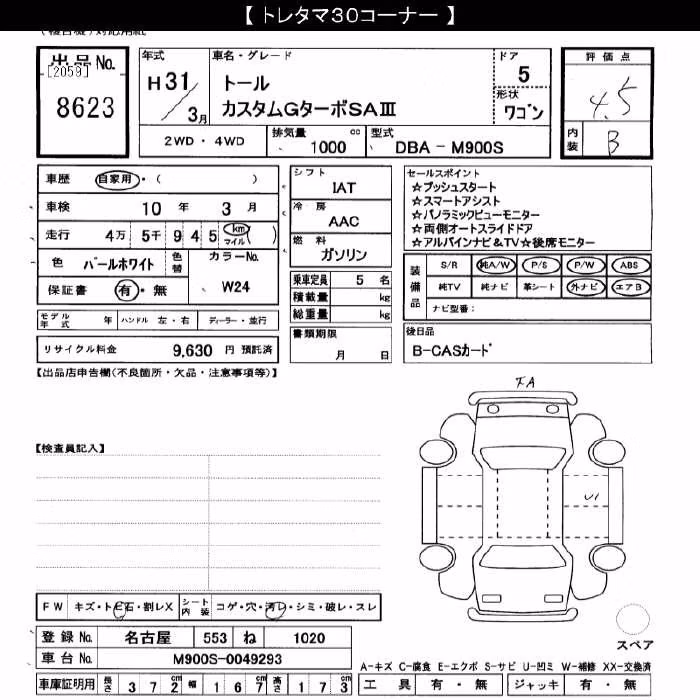 【 トレタマ30コーナー 】
(複合機)対応用紙
出品No.
[2059]
8623
年式
H 31
3月
車名・グレード
トール
カスタムGターボSAⅢ
ドア
5
形状
ワゴン
2WD・4WD
排気量
1000 cc
型式
DBA － M900S
評価点
4.5
内装
B
車歴 自家用・( )
車検 10 年 3 月
走行 4万 5千 9 4 5 km マイル ( )
色 パールホワイト 色替
カラーNo.
W24
保証書 有・無
モデル年式 年 ハンドル 左・右 ディーラー・並行
リサイクル料金 9,630 円 預託済
シフト
IAT
冷房
AAC
燃料
ガソリン
乗車定員 5 名
積載量 kg
総重量 kg
書類期限
月 日
セールスポイント
☆プッシュスタート
☆スマートアシスト
☆パノラミックビューモニター
☆両側オートスライドドア
☆アルパインナビ&TV☆後席モニター
装備品
S/R 純A/W P/S P/W ABS
純TV 純ナビ 革シート 外ナビ エアB
ナビ型番：
後日品
B-CASカード
【出品店申告欄(不良箇所・欠品・注意事項等)】
【検査員記入】
FW キズ・トビ石・割レX シート内装 コゲ・穴・汚レ・シミ・破レ・スレ
登録No. 名古屋 553 ね 1020
車台No. M900S-0049293
車庫証明用 長さ 372cm 幅 167cm 高さ 173cm
U1
スペア
A-キズ C-腐食 E-エクボ S-サビ U-凹ミ W-補修 XX-交換済
工具 有・無 ジャッキ 有・無